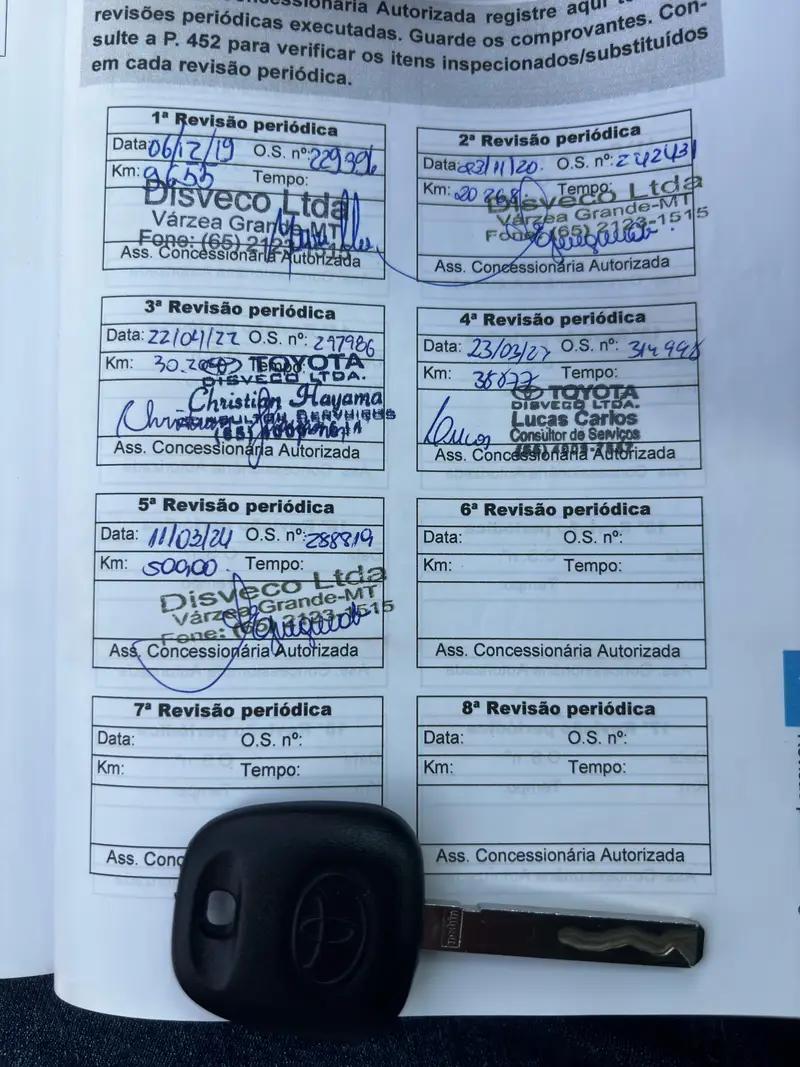 Concessionária Autorizada registre aqui
revisões periódicas executadas. Guarde os comprovantes. Con-
sulte a P. 452 para verificar os itens inspecionados/substituídos
em cada revisão periódica.
1ª Revisão periódica
Data: 06/12/19 O.S. nº: 229396
Km: 9653 Tempo:
Disveco Ltda
Várzea Grande-MT
Fone: (65) 2123-1515
Ass. Concessionária Autorizada
2ª Revisão periódica
Data: 23/11/20. O.S. nº: 242431
Km: 20268 Tempo:
Disveco Ltda
Várzea Grande-MT
Fone: (65) 2123-1515
Ass. Concessionária Autorizada
3ª Revisão periódica
Data: 22/04/22 O.S. nº: 297986
Km: Tempo:
TOYOTA
DISVECO LTDA.
Christian Hayama
Ass. Concessionária Autorizada
4ª Revisão periódica
Data: 23/03/23 O.S. nº: 314998
Km: 38877 Tempo:
TOYOTA
DISVECO LTDA.
Lucas Carlos
Consultor de Serviços
Lucas
Ass. Concessionária Autorizada
5ª Revisão periódica
Data: 11/03/24 O.S. nº: 288819
Km: 50000 Tempo:
Disveco Ltda
Várzea Grande-MT
Fone: (65) 2123-1515
Ass. Concessionária Autorizada
6ª Revisão periódica
Data: O.S. nº:
Km: Tempo:
Ass. Concessionária Autorizada
7ª Revisão periódica
Data: O.S. nº:
Km: Tempo:
Ass. Conc
8ª Revisão periódica
Data: O.S. nº:
Km: Tempo:
Ass. Concessionária Autorizada